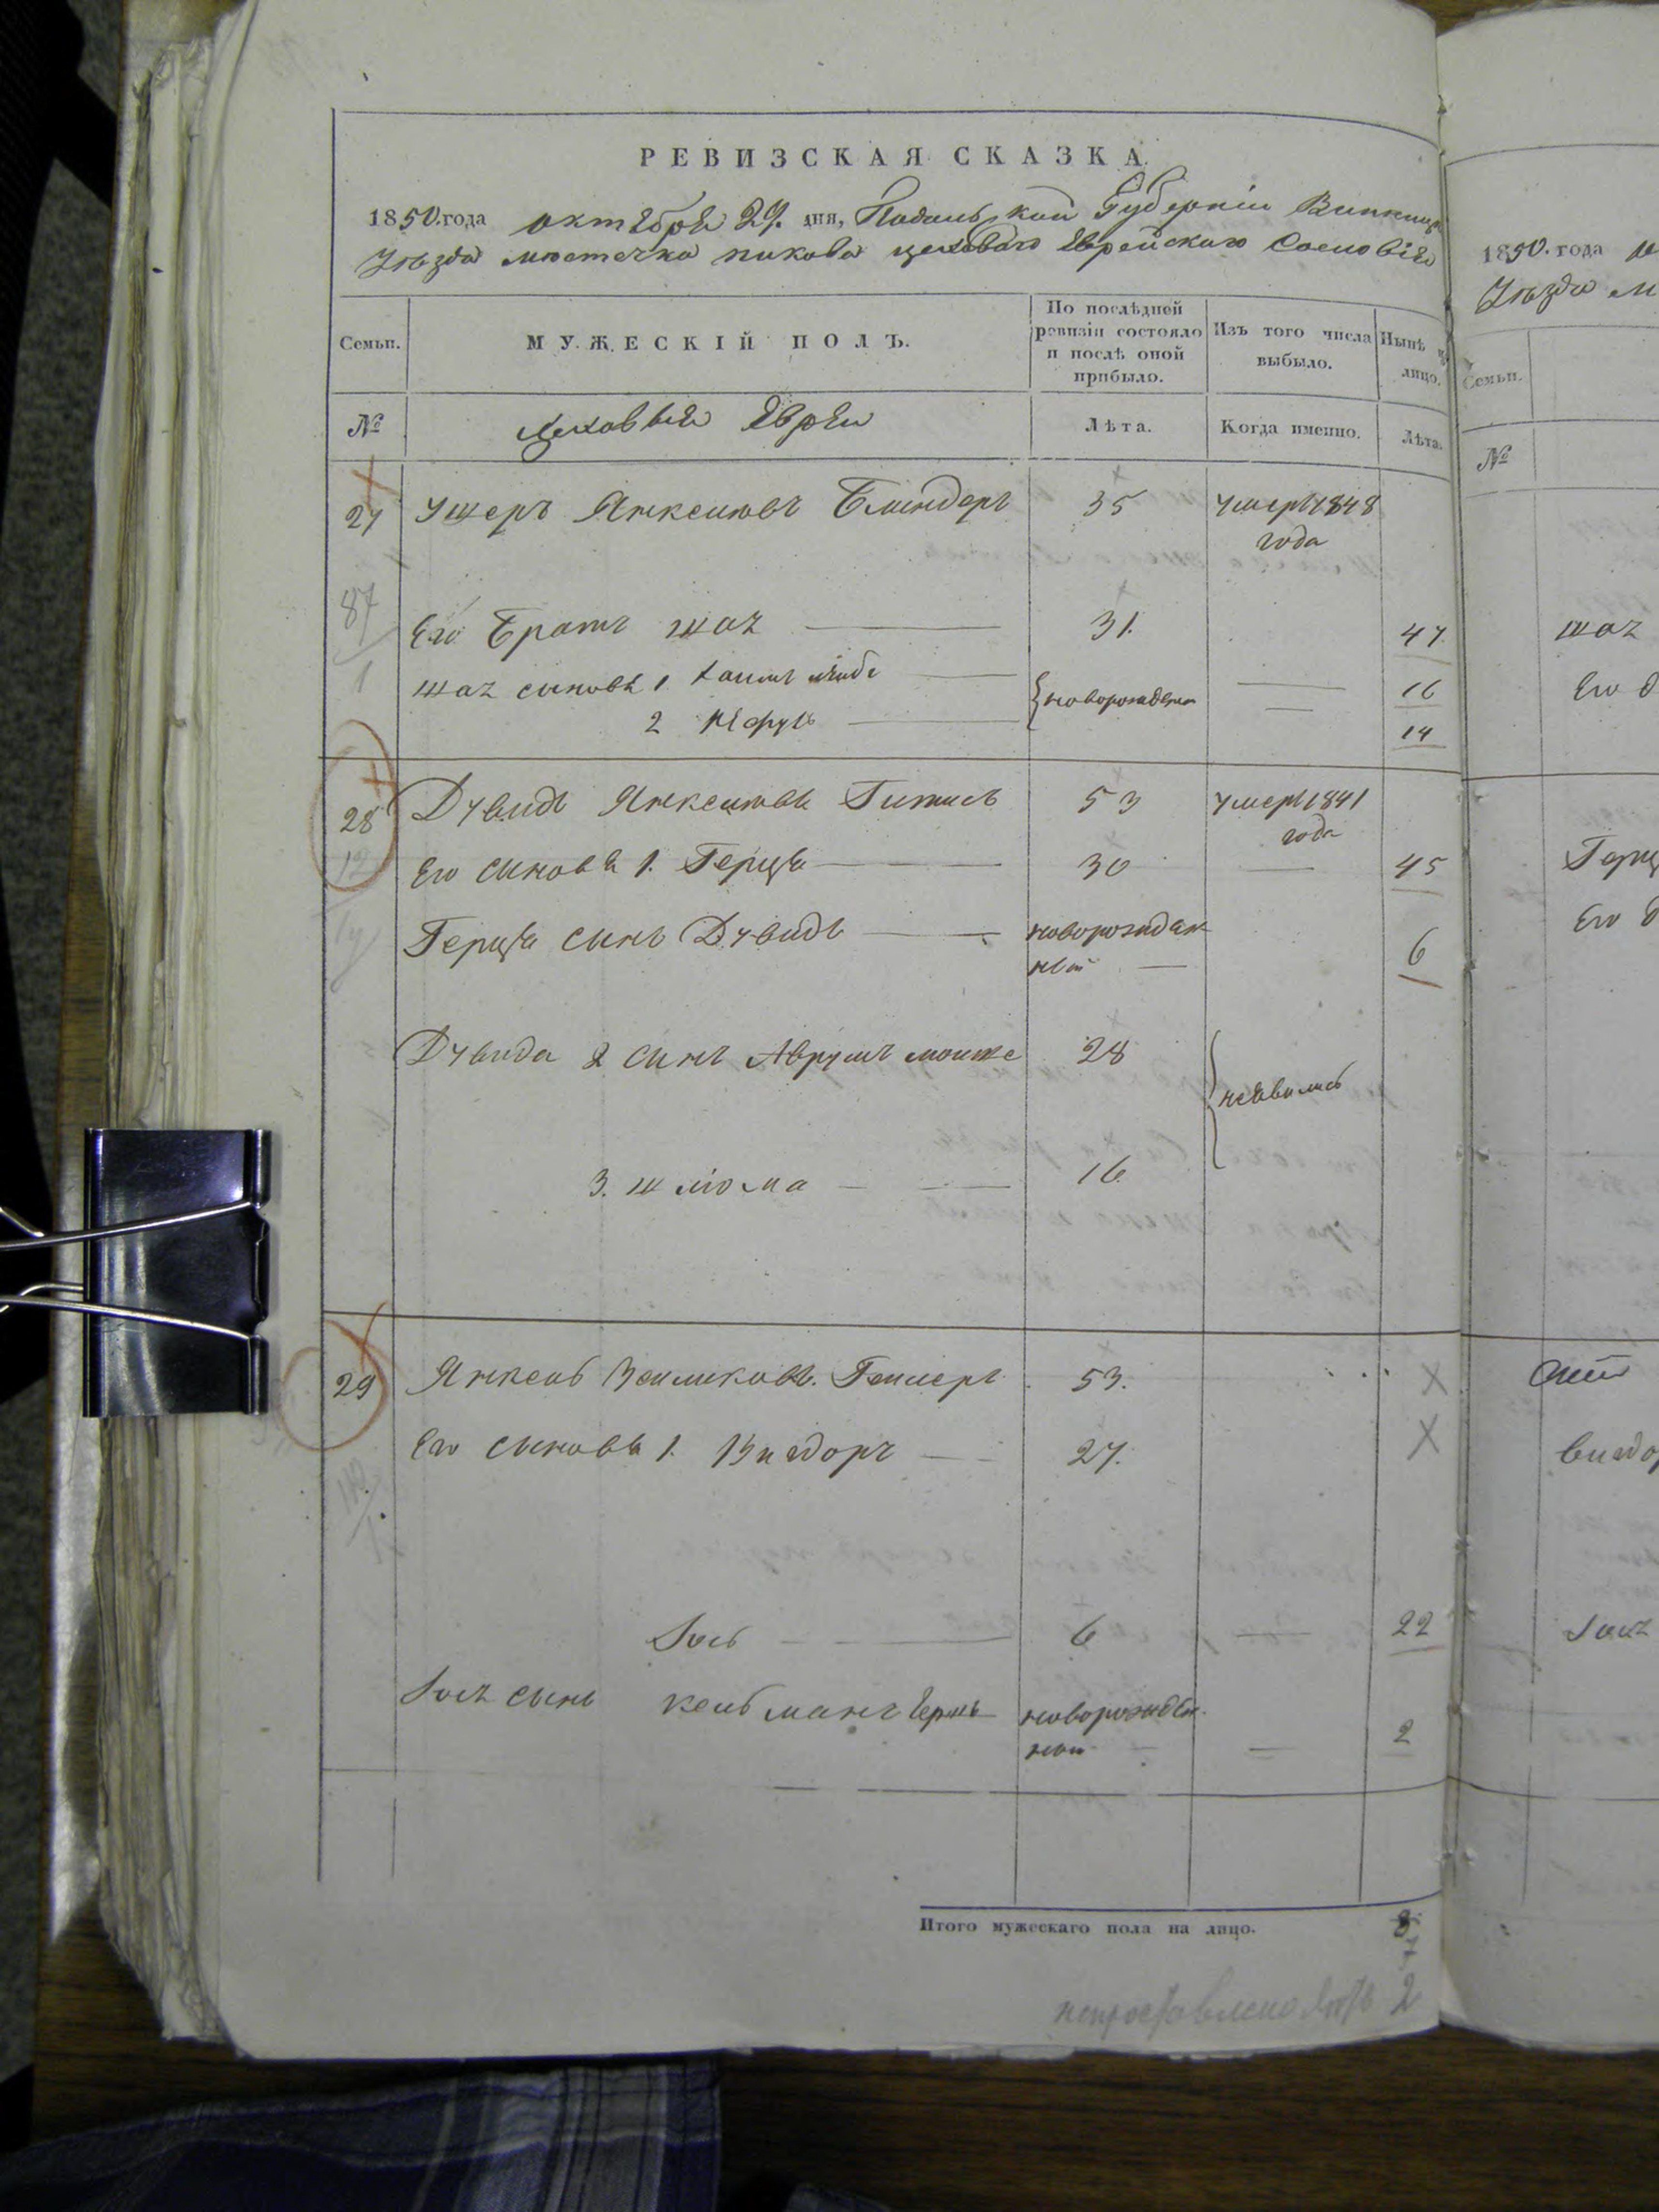 РЕВИЗСКАЯ СКАЗКА
1850. года октября 27. дня, Подольской Губерніи Винниц.
Уѣзда мѣстечка Пикова цеховаго Еврейскаго Сословія
Семьи.
МУЖЕСКІЙ ПОЛЪ.
По послѣдней ревизіи состояло и послѣ оной прибыло.
Изъ того числа выбыло.
Нынѣ на лицо.
№
Цеховые Евреи
Лѣта.
Когда именно.
Лѣта.
27 Ушеръ Янкелювъ Блиндеръ 35 умеръ 1848
года
87
Его Братъ шая 31. 47.
1 шая сыновья 1. Хаимъ лейбъ новорожден 16
2 14
28 Дувидъ Янкелювъ Гитисъ 53 умеръ 1841
года
12 Его сыновья 1. Герцъ 30 45
Герца сынъ Дувидъ новорожден
ный 6
Дувида 2 сынъ Аврумъ мошке 28
неявились
3. шлюма 16.
29 Янкель Зеиликовъ. Геллеръ 53. X
Его сыновья 1. Вигдоръ 27. X
Іось 6 22
Іося сынъ Кельманъ Берко новорожден.
ный 2
Итого мужескаго пола на лицо. 8
непоставлено лѣтъ 2
1850. года
Уѣзда м
Семьи.
№
шая
Его
Герц
Его
вигдо